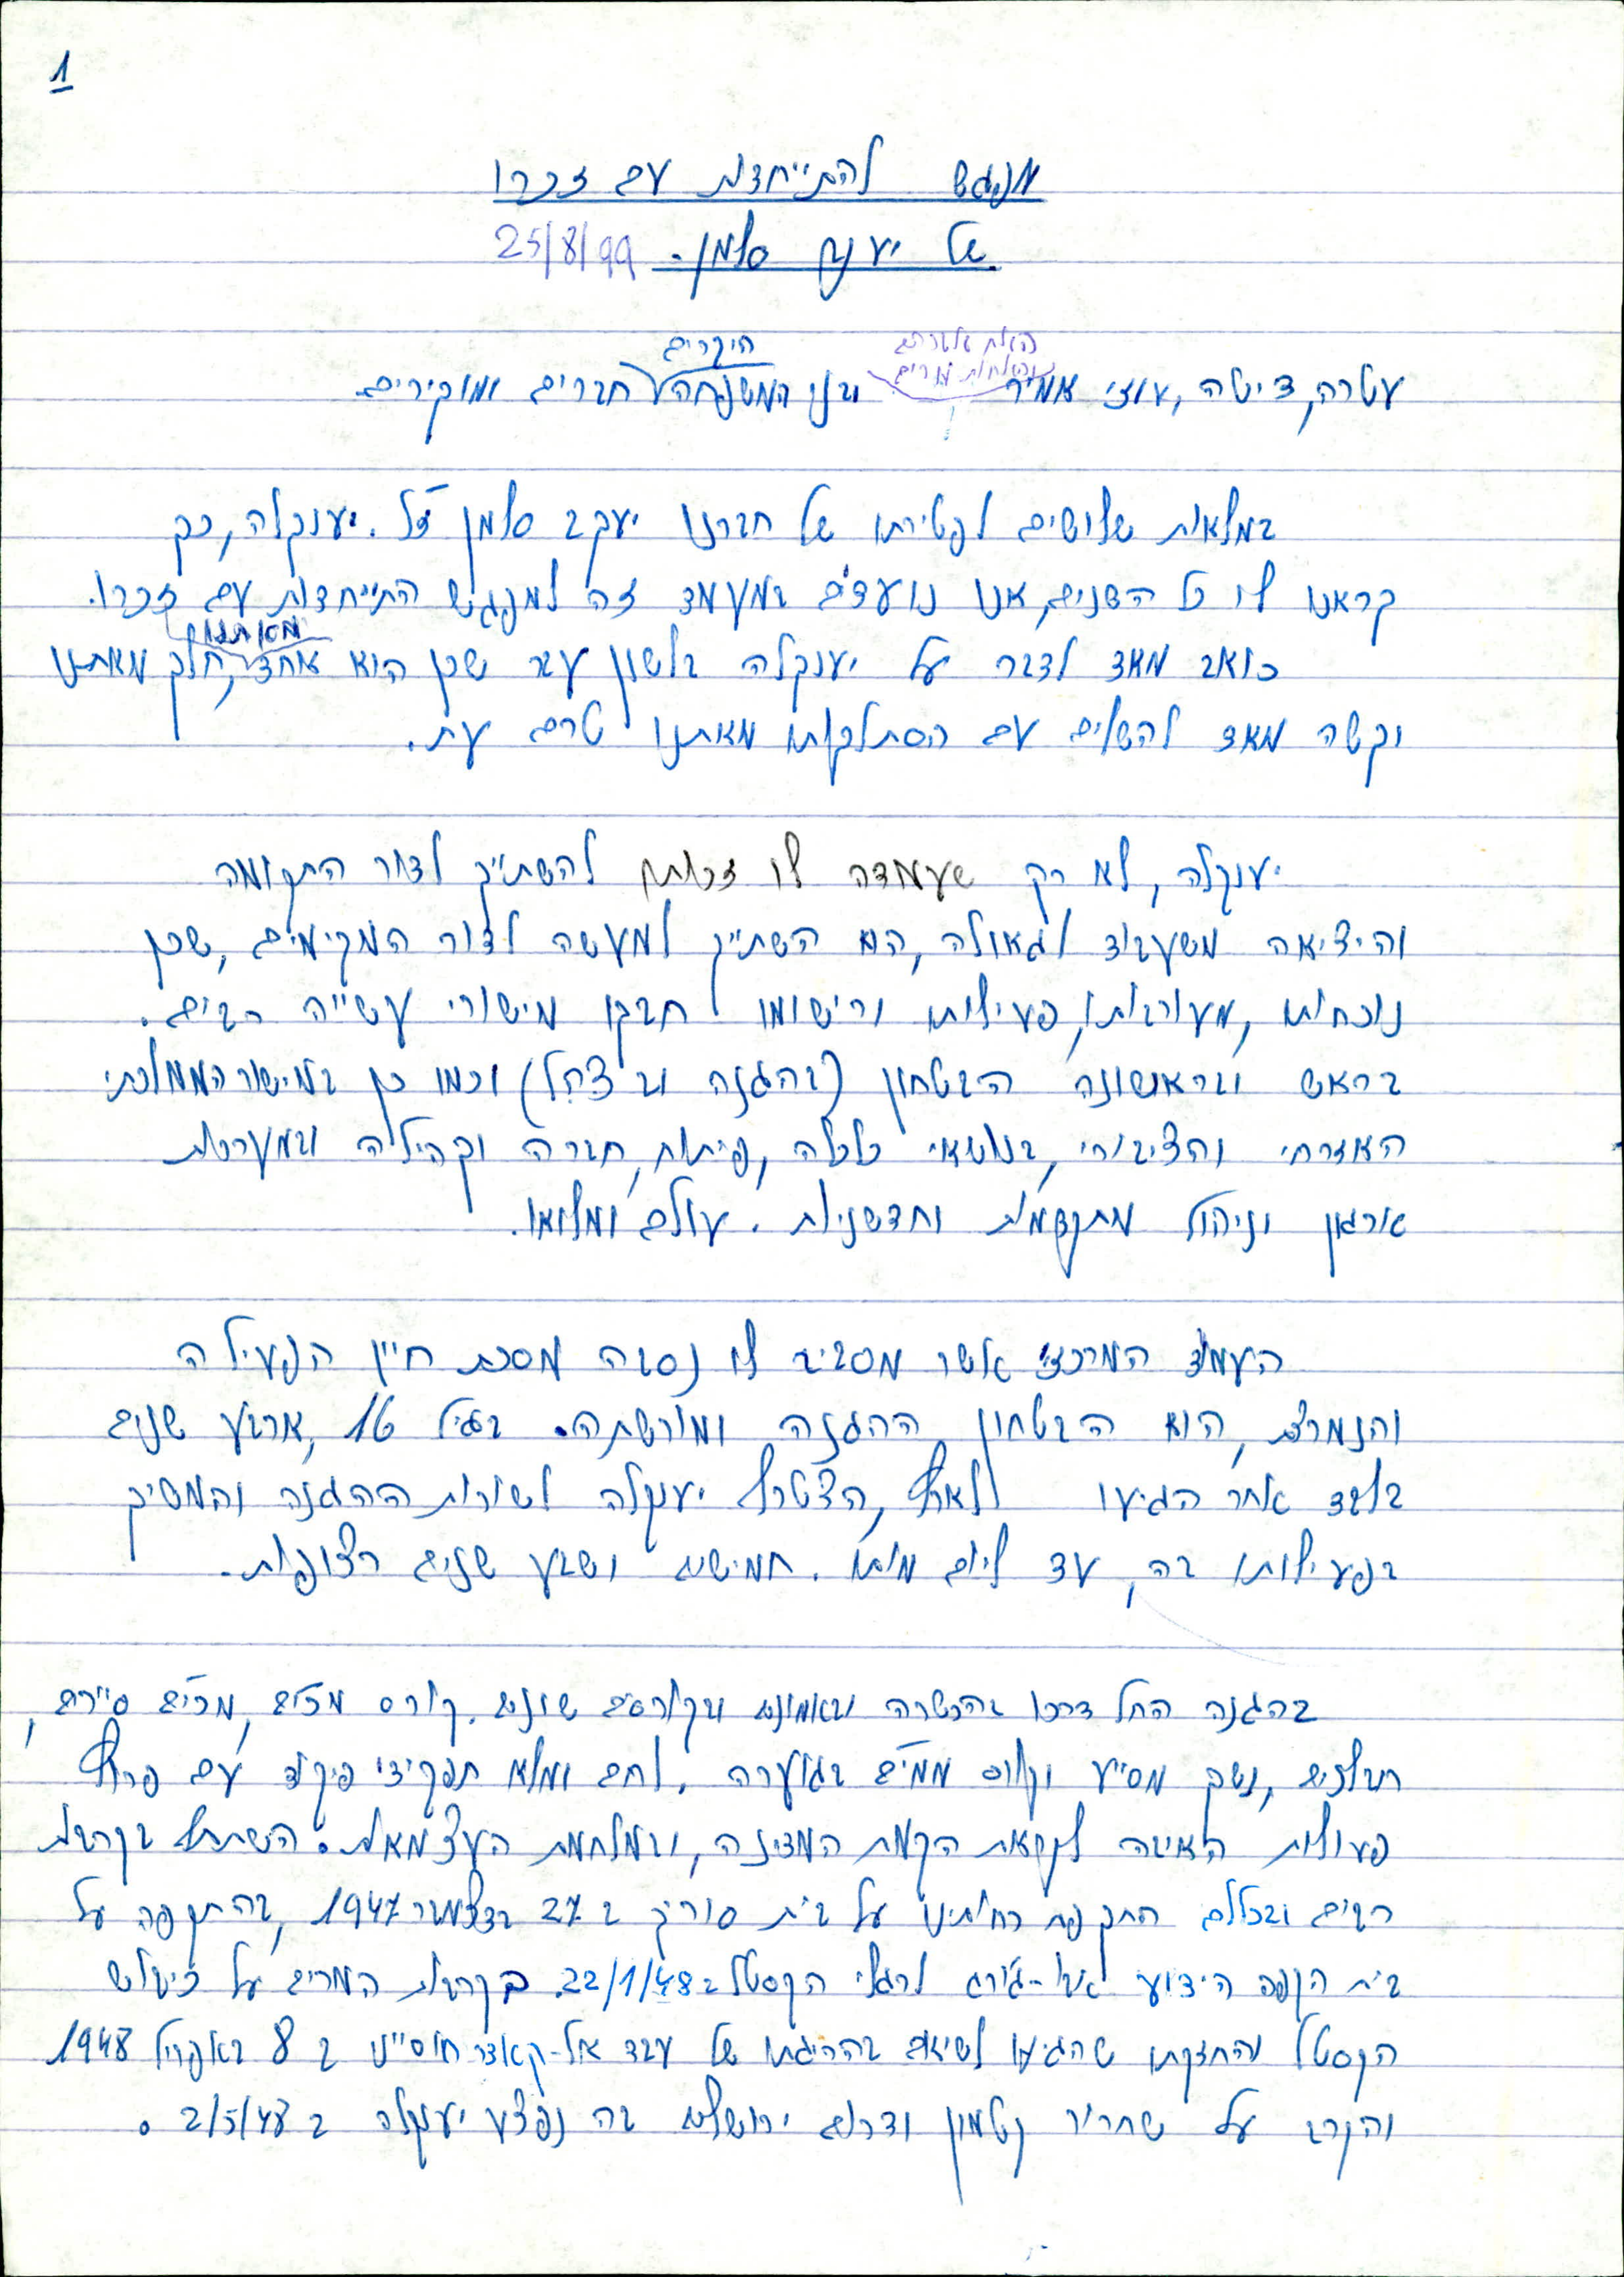 1
מפגש להתייחדות עם זכרו
של יעקב סלמן. 25/8/99
היקרים
עטרה, דיטה, עוזי אמיר ובני המשפחה חברים ומוקירים
במלאות שלושים לפטירתו של חברנו יעקב סלמן ז"ל. יענקלה, כך
קראנו לו כל השנים, אנו נועדים במעמד זה למפגש התייחדות עם זכרו.
מאיתנו
כואב מאד לדבר על יענקלה בלשון עבר שכן הוא אחד, חלק מאתנו
וקשה מאד להשלים עם הסתלקותו מאתנו טרם עת.
יענקלה, לא רק שעמדה לו זכותו להשתייך לדור התקומה
והיציאה משעבוד לגאולה, הוא השתייך למעשה לדור המקימים, שכן
נוכחותו, מעורבותו, פעילותו ורישומו חבקו מישורי עשייה רבים.
בראש ובראשונה הבטחון (בהגנה וב צה"ל) וכמו כן במישור הממלכתי
האזרחי והציבורי, בנושאי כלכלה, פיתוח, חברה וקהילה ובמערכות
ארגון וניהול מתקדמות וחדשניות. עולם ומלואו.
העמוד המרכזי אשר מסביב לו נסבה מסכת חייו הפעילה
והנמרצת, הוא הבטחון, ההגנה ומורשתה. בגיל 16, ארבע שנים
בלבד אחר הגיעו לארץ, הצטרף יענקלה לשורות ההגנה והמשיך
בפעילותו בה, עד ליום מותו. חמישים ושבע שנים רצופות.
בהגנה החל דרכו בהכשרה ובאמונים ובקורסים שונים. קורס מכ"ים, מכ"ים סיירים,
חבלנים, נשק מסייע וקורס ממ"ים בג'וערה. לחם ומלא תפקידי פיקוד עם פרוץ
פעולות האיבה לקראת הקמת המדינה, ובמלחמת העצמאות. השתתף בקרבות
רבים ובכללם התקפת כוחותינו על בית סוריק ב 27 בדצמבר 1947, בהתקפה על
בית הקפה הידוע אבו-ג'ורג לרגלי הקסטל ב 22/1/48. בקרבות המרים על כיבוש
הקסטל והחזקתו שהגיעו לשיאם בהריגתו של עבד אל-קאדר חוסייני ב 8 באפריל 1948
והקרב על שחרור קטמון ודרום ירושלים בה נפצע יענקלה ב 2/5/48.